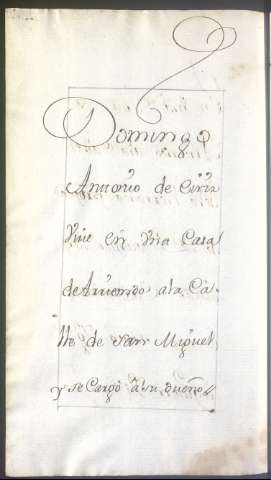 Domingo
Antonio de
Viue en vna Casa
de Arriendo a la Ca-
lle de San Miguel
y se Cargó á su dueño